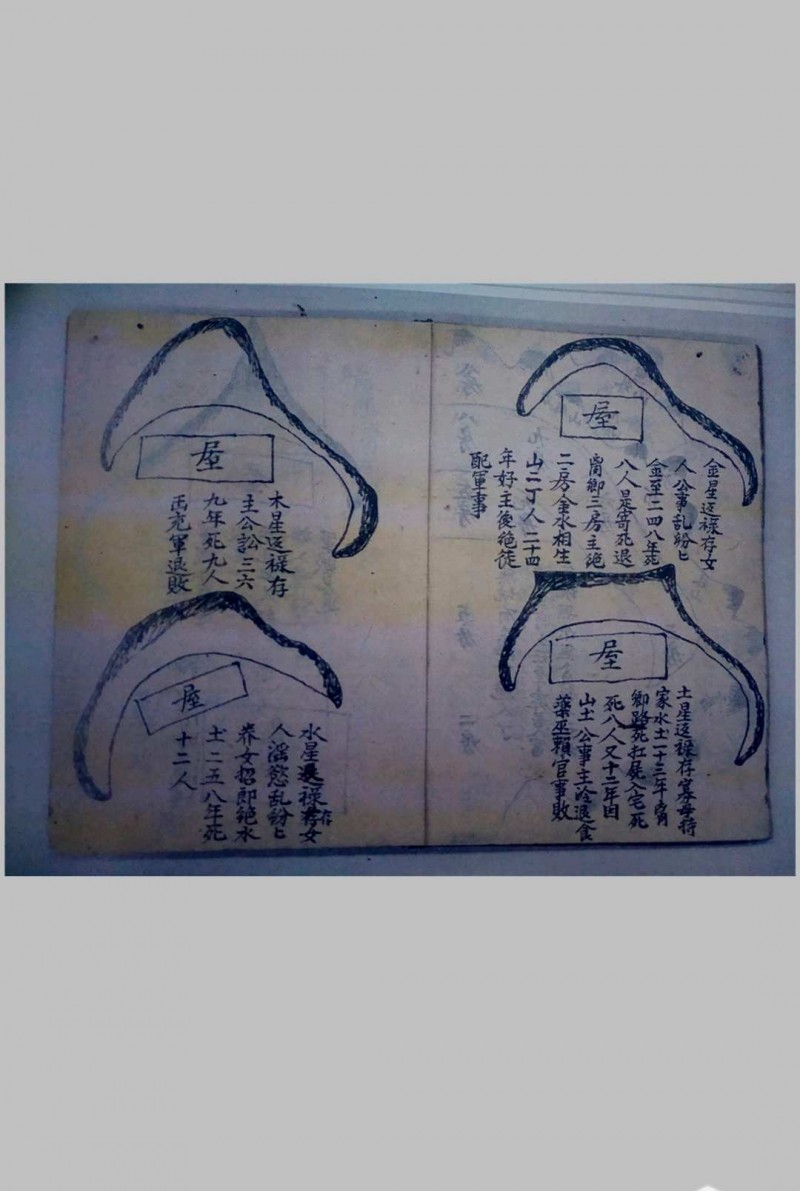 屋
金星逆祿存女
人公事乱紛匕
金至二四八年死
八人是寄死退
卿三房主絶
二房金水相生
山二丁人二十四
年好主後絶徒
配軍事
屋
土星逆祿存寡母持
家水土一十三年
卿路死扛屍入宅死
死八人又十二年因
山土公事主冷退食
藥巫賴官事敗
屋
木星逆祿存
主公訟三六
九年死九人
充軍退敗
屋
水星祿存女
人滛慾乱紛匕
養女招郎絶水
土二五八年死
十二人